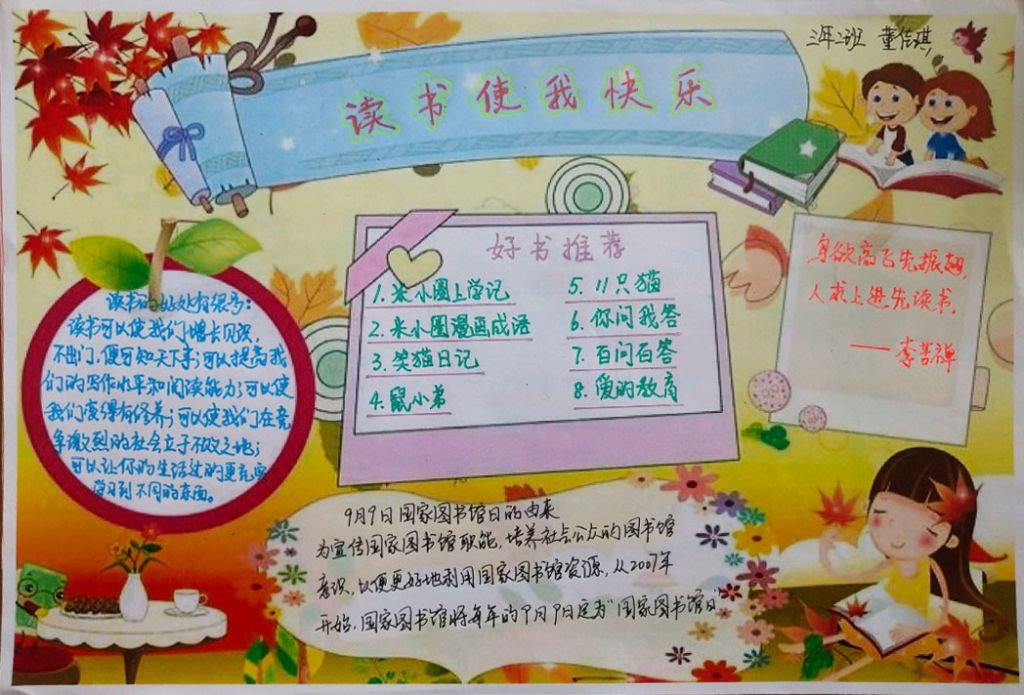 三年二班 董佳琪
读书使我快乐
读书的好处有很多:
读书可以使我们增长见识,
不出门,便可知天下事;可以提高我
们的写作水平和阅读能力;可以使
我们变得有修养;可以使我们在竞
争激烈的社会立于不败之地;
可以让你的生活过的更充实
学习到不同的东西。
好书推荐
1. 米小圈上学记
2. 米小圈漫画成语
3. 笑猫日记
4. 鼠小弟
5. 11只猫
6. 你问我答
7. 百问百答
8. 爱的教育
鸟欲高飞先振翅,
人求上进先读书。
——李苦禅
9月9日国家图书馆日的由来
为宣传国家图书馆职能,培养社会公众的图书馆
意识,以便更好地利用国家图书馆资源,从2007年
开始,国家图书馆将每年的9月9日定为"国家图书馆日"